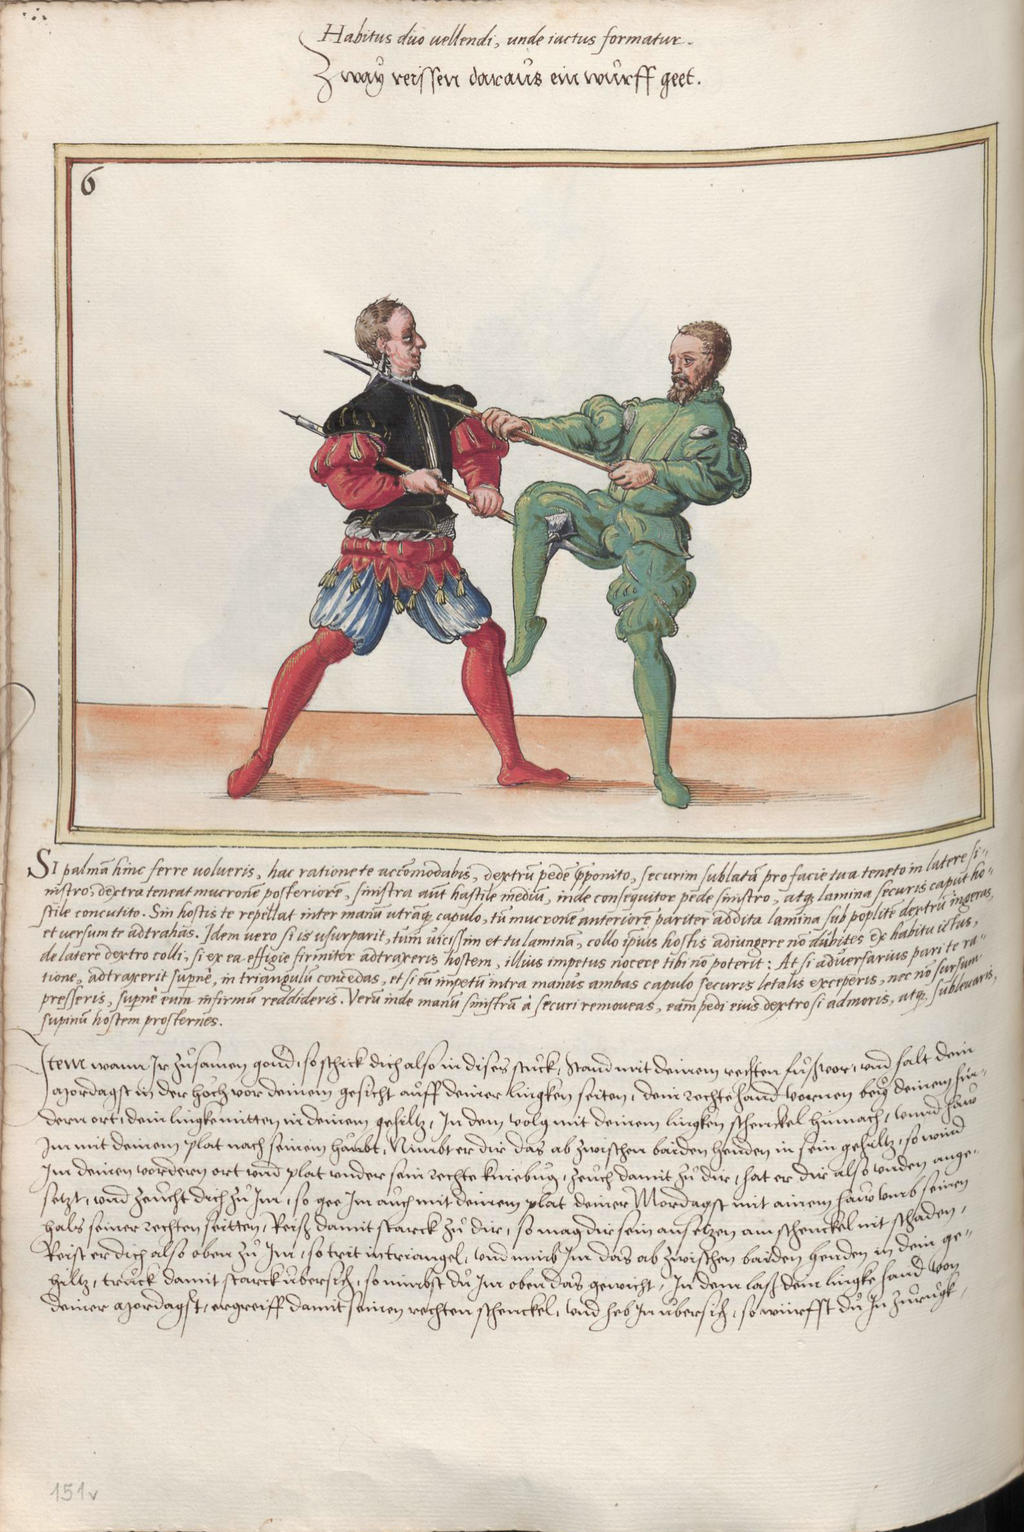 Habitus duo vellendi, unde iactus formatur.
Zway reissen daraus ein wurff geet.
6
SI palmã hinc ferre volueris, hac ratione te accõmodabis, dextrũ pedẽ p̱ponito, securim sublatã pro facie tua teneto in latere si-
nistro, dextra teneat mucronẽ posteriorẽ, sinistra aũt hastile mediũ, inde consequitor pede sinistro, atq̃ lamina securis caput ho-
stile concutito. Sin hostis te repellat inter manũ utrãq̃ capulo, tu mucronẽ anteriorẽ pariter addita lamina sub poplitẽ dextrũ ingeras,
et versum te adtrahas. Idem vero si is usurparit, tum vicissim et tu laminã, collo ipsius hostis adiungere nõ dubites ex habitu ictus,
de latere dextro colli, si ex ea effigie firmiter adtraxeris hostem, illius impetus nocere tibi nõ poterit: At si adversarius pari te ra-
tione, adtraxerit supnè, in triangulũ concedas, et si eũ impetũ intra manus ambas capulo securis letalis exceperis, nec nõ sursum
presseris, supnè eum infirmũ reddideris. Verũ inde manũ sinistrã à securi removeas, eam pedi eius dextro si admoris, atq̃ sublevaris,
supinũ hostem prosternes.
Item wann Ir zusamen gond, so schick dich also in dises stuck, Stand mit deinem rechten fuß vor, vnd halt dein
Mordagst in der höch vor deinem gesicht auff deiner lingken seiten, dein rechte hand vornen bey deinem hin-
dern ort, dein lingke mitten in deinem gehiltz, In dem volg mit deinem lingken schenckel hinnach, vnnd haw
Im mit deinem plat nach seinem haubt, Nimbt er dir das ab zwischen baiden henden in sein gehiltz, so wind
Im deinen vordern ort vnd plat vnder sein rechte kniebug, zeuch damit zu dir, hat er dir also vnden ange-
setzt, vnd zeucht dich zu Im, so gee Im auch mit deinem plat deiner Mordagst mit ainem haw vmb seinen
hals seiner rechten seitten, Reiß damit starck zu dir, so mag dir sein ansetzen am schenckel nit schaden,
Reist er dich also oben zu Im, so trit in triangel, vnd nimb Im das ab zwischen baiden henden in dein ge-
hiltz, truck damit starck übersich, so nimbst du Im oben das gewicht, In dem laß dein lingke hand von
deiner Mordagst, ergreiff damit seinen rechten schenckel, vnd heb In übersich, so würffst du In zurugk,
151v